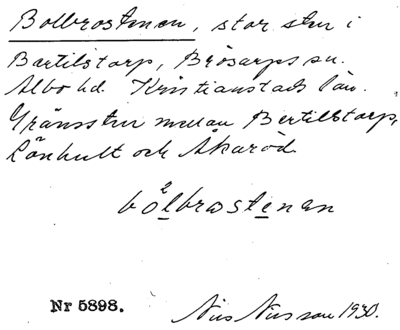 Bolbrostenen, stor sten i
Bertilstorp, Brösarps sn.
Albo hd. Kristianstads län.
Gränssten mellan Bertilstorp,
Lönhult och Åkaröd
bo̊lbrostenen
Nr 5898.
Nils Nilsson 1930.